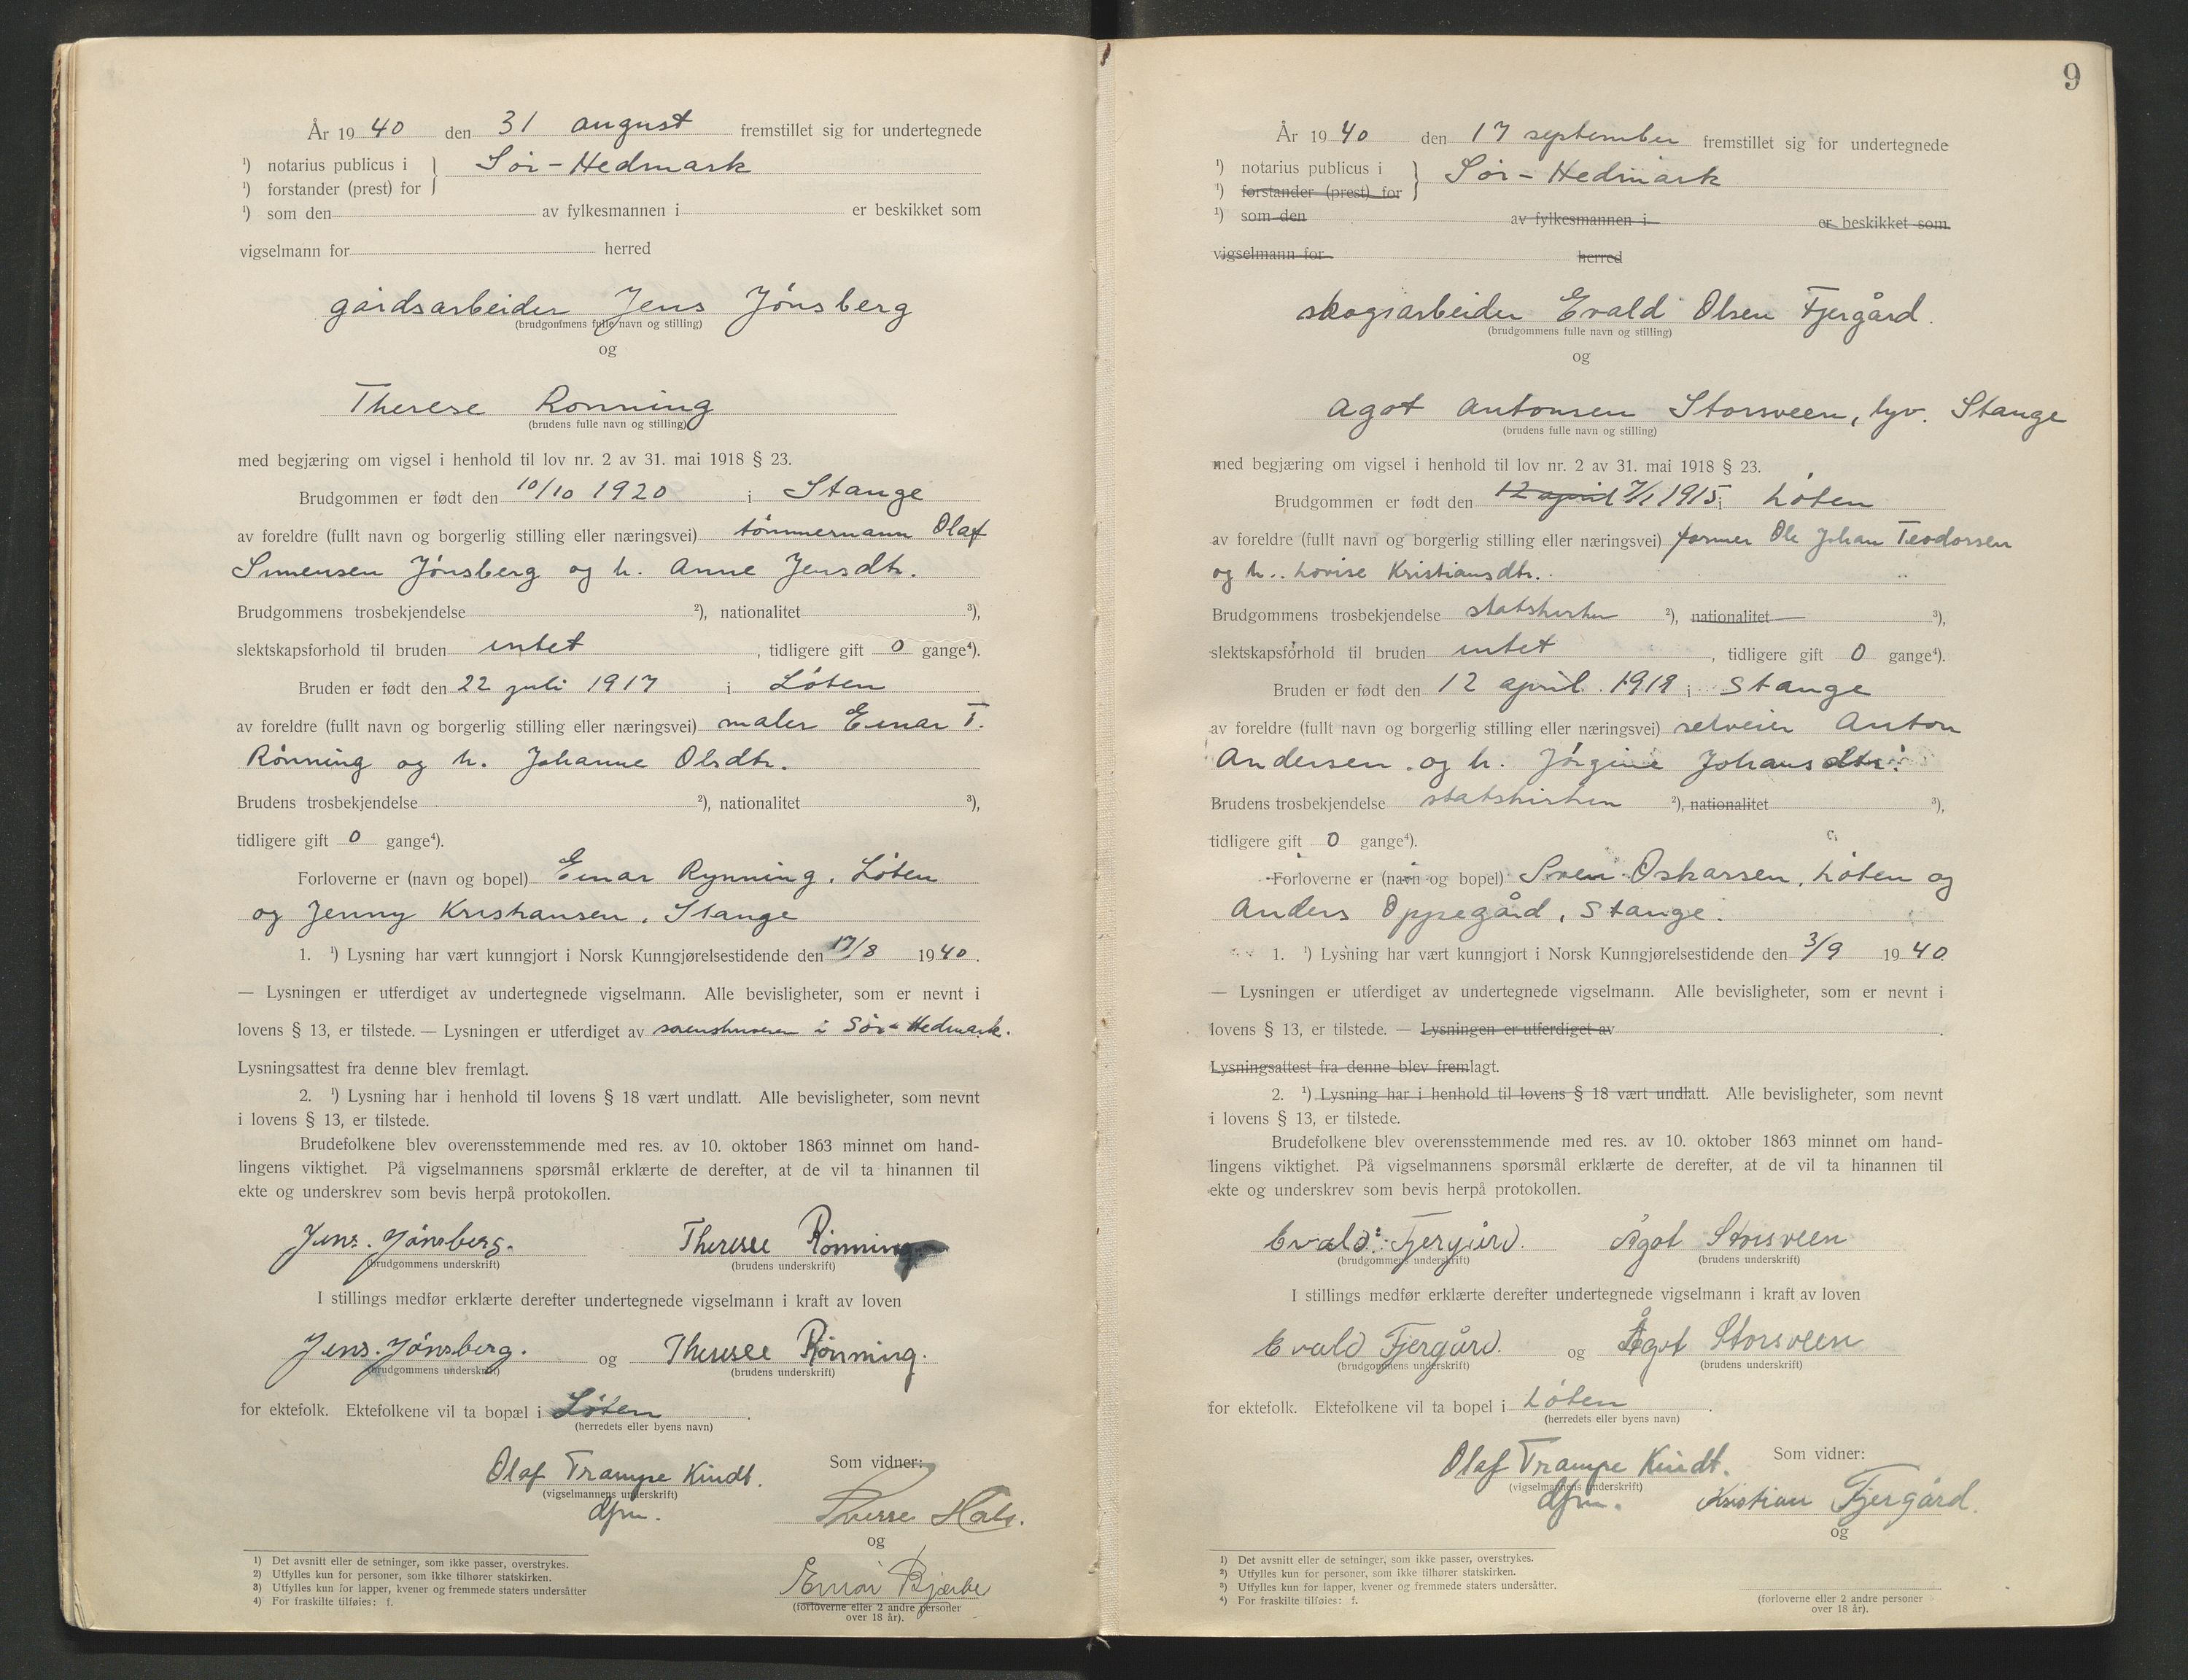 År 1940 den 31 august fremstillet sig for undertegnede
¹) notarius publicus i } Sør-Hedmark
¹) forstander (prest) for
¹) som den av fylkesmannen i er beskikket som
vigselmann for herred
gårdsarbeider Jens Jønsberg
(brudgommens fulle navn og stilling)
og
Therese Rønning
(brudens fulle navn og stilling)
med begjæring om vigsel i henhold til lov nr. 2 av 31. mai 1918 § 23.
Brudgommen er født den 10/10 1920 i Stange
av foreldre (fullt navn og borgerlig stilling eller næringsvei) tømmermann Olaf
Simensen Jønsberg og h. Anne Jensdtr.
Brudgommens trosbekjendelse ²), nationalitet ³),
slektskapsforhold til bruden intet, tidligere gift 0 gange⁴).
Bruden er født den 22 juli 1917 i Løten
av foreldre (fullt navn og borgerlig stilling eller næringsvei) maler Einar T.
Rønning og h. Johanne Olsdtr.
Brudens trosbekjendelse ²), nationalitet ³),
tidligere gift 0 gange⁴).
Forloverne er (navn og bopel) Einar Rynning, Løten
og Jenny Kristiansen, Stange
1. ¹) Lysning har vært kunngjort i Norsk Kunngjørelsestidende den 17/8 1940.
— Lysningen er utferdiget av undertegnede vigselmann. Alle bevisligheter, som er nevnt i
lovens § 13, er tilstede. — Lysningen er utferdiget av sorenskriveren i Sør-Hedmark.
Lysningsattest fra denne blev fremlagt.
2. ¹) Lysning har i henhold til lovens § 18 vært undlatt. Alle bevisligheter, som nevnt
i lovens § 13, er tilstede.
Brudefolkene blev overensstemmende med res. av 10. oktober 1863 minnet om hand-
lingens viktighet. På vigselmannens spørsmål erklærte de derefter, at de vil ta hinannen til
ekte og underskrev som bevis herpå protokollen.
Jens. Jønsberg. Therese Rønning
(brudgommens underskrift) (brudens underskrift)
I stillings medfør erklærte derefter undertegnede vigselmann i kraft av loven
Jens. Jønsberg. og Therese Rønning.
(brudgommens underskrift) (brudens underskrift)
for ektefolk. Ektefolkene vil ta bopæl i Løten.
(herredets eller byens navn)
Olaf Trampe Kindt. Som vidner:
(vigselmannens underskrift)
dfm. Sverre Hals.
og
Einar Bjærke
(forloverne eller 2 andre personer
over 18 år).
1) Det avsnitt eller de setninger, som ikke passer, overstrykes.
2) Utfylles kun for personer, som ikke tilhører statskirken.
3) Utfylles kun for lapper, kvener og fremmede staters undersåtter
4) For fraskilte tilføies: f.
9
År 1940 den 17 september fremstillet sig for undertegnede
¹) notarius publicus i } Sør-Hedmark
¹) forstander (prest) for
¹) som den av fylkesmannen i er beskikket som
vigselmann for herred
skogsarbeider Evald Olsen Fjergård.
(brudgommens fulle navn og stilling)
og
Agot Antonsen Storsveen, tyv. Stange
(brudens fulle navn og stilling)
med begjæring om vigsel i henhold til lov nr. 2 av 31. mai 1918 § 23.
Brudgommen er født den 12 april 7/1 1915 i Løten
av foreldre (fullt navn og borgerlig stilling eller næringsvei) former Ole Johan Teodorsen
og h. Lovise Kristiansdtr.
Brudgommens trosbekjendelse statskirken ²), nationalitet ³),
slektskapsforhold til bruden intet, tidligere gift 0 gange⁴).
Bruden er født den 12 april 1919 i Stange
av foreldre (fullt navn og borgerlig stilling eller næringsvei) selveier Anton
Andersen og h. Jørgine Johansdtr.
Brudens trosbekjendelse statskirken ²), nationalitet ³),
tidligere gift 0 gange⁴).
Forloverne er (navn og bopel) Sven Oskarsen, Løten og
Anders Oppegård, Stange.
1. ¹) Lysning har vært kunngjort i Norsk Kunngjørelsestidende den 3/9 1940.
— Lysningen er utferdiget av undertegnede vigselmann. Alle bevisligheter, som er nevnt i
lovens § 13, er tilstede. — Lysningen er utferdiget av .
Lysningsattest fra denne blev fremlagt.
2. ¹) Lysning har i henhold til lovens § 18 vært undlatt. Alle bevisligheter, som nevnt
i lovens § 13, er tilstede.
Brudefolkene blev overensstemmende med res. av 10. oktober 1863 minnet om hand-
lingens viktighet. På vigselmannens spørsmål erklærte de derefter, at de vil ta hinannen til
ekte og underskrev som bevis herpå protokollen.
Evald Fjergård. Ågot Storsveen
(brudgommens underskrift) (brudens underskrift)
I stillings medfør erklærte derefter undertegnede vigselmann i kraft av loven
Evald Fjergård. og Ågot Storsveen
(brudgommens underskrift) (brudens underskrift)
for ektefolk. Ektefolkene vil ta bopel i Løten.
(herredets eller byens navn)
Olaf Trampe Kindt. Som vidner:
(vigselmannens underskrift)
dfm. Kristian Fjergård.
og
(forloverne eller 2 andre personer
over 18 år).
1) Det avsnitt eller de setninger, som ikke passer, overstrykes.
2) Utfylles kun for personer, som ikke tilhører statskirken.
3) Utfylles kun for lapper, kvener og fremmede staters undersåtter.
4) For fraskilte tilføies: f.